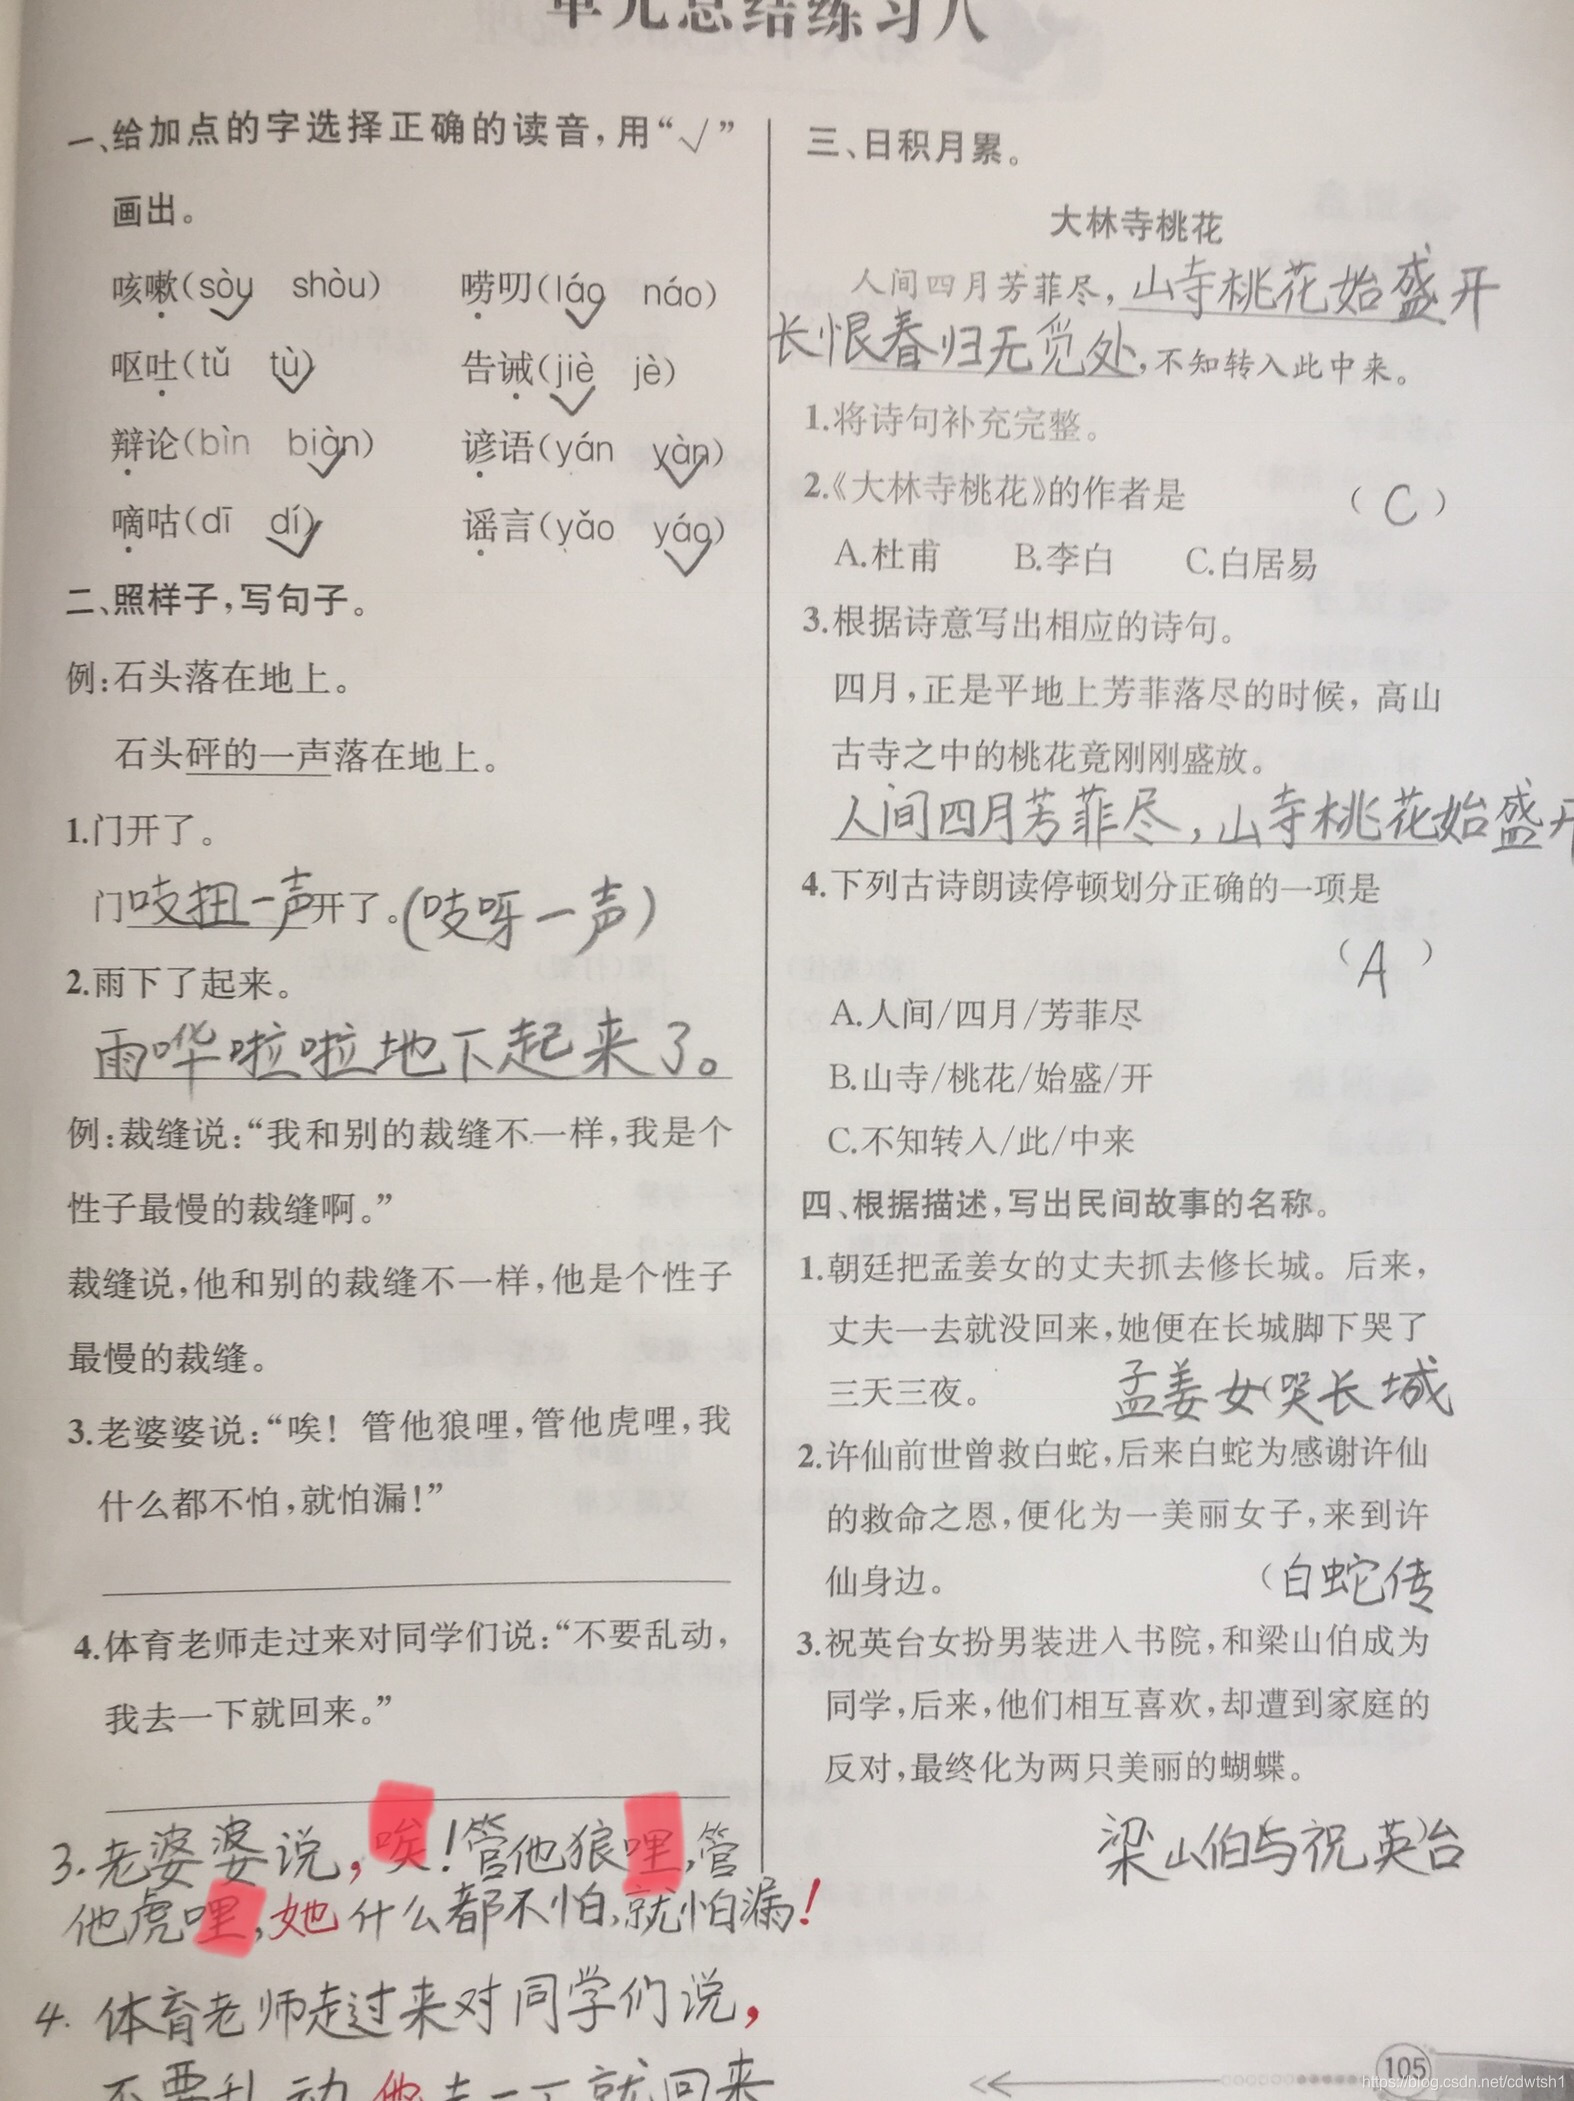 单元总结练习八
一、给加点的字选择正确的读音,用“√”
画出。
咳嗽(sòu shòu) 唠叨(láo náo)
呕吐(tǔ tù) 告诫(jiè jè)
辩论(bìn biàn) 谚语(yán yàn)
嘀咕(dī dí) 谣言(yǎo yáo)
二、照样子,写句子。
例:石头落在地上。
石头砰的一声落在地上。
1.门开了。
门吱扭一声开了。(吱呀一声)
2.雨下了起来。
雨哗啦啦地下起来了。
例:裁缝说:“我和别的裁缝不一样,我是个
性子最慢的裁缝啊。”
裁缝说,他和别的裁缝不一样,他是个性子
最慢的裁缝。
3.老婆婆说:“唉!管他狼哩,管他虎哩,我
什么都不怕,就怕漏!”
4.体育老师走过来对同学们说:“不要乱动,
我去一下就回来。”
3.老婆婆说,唉!管他狼哩,管
他虎哩,她什么都不怕,就怕漏!
4.体育老师走过来对同学们说,
不要乱动他去一下就回来
三、日积月累。
大林寺桃花
人间四月芳菲尽,山寺桃花始盛开
长恨春归无觅处,不知转入此中来。
1.将诗句补充完整。
2.《大林寺桃花》的作者是 (C)
A.杜甫 B.李白 C.白居易
3.根据诗意写出相应的诗句。
四月,正是平地上芳菲落尽的时候,高山
古寺之中的桃花竟刚刚盛放。
人间四月芳菲尽,山寺桃花始盛开
4.下列古诗朗读停顿划分正确的一项是
(A)
A.人间/四月/芳菲尽
B.山寺/桃花/始盛/开
C.不知转入/此/中来
四、根据描述,写出民间故事的名称。
1.朝廷把孟姜女的丈夫抓去修长城。后来,
丈夫一去就没回来,她便在长城脚下哭了
三天三夜。 孟姜女(哭长城
2.许仙前世曾救白蛇,后来白蛇为感谢许仙
的救命之恩,便化为一美丽女子,来到许
仙身边。 (白蛇传
3.祝英台女扮男装进入书院,和梁山伯成为
同学,后来,他们相互喜欢,却遭到家庭的
反对,最终化为两只美丽的蝴蝶。
梁山伯与祝英台
105
https://blog.csdn.net/cdwtsh1